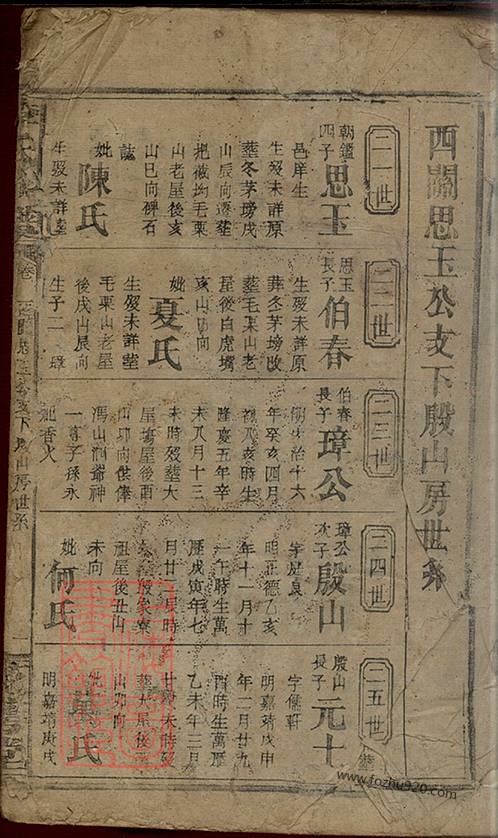 西關思玉公支下殷山房世系
二一世
朝鑑
四子
思玉
邑庠生
生歿未詳原
葬冬茅塝戌
山辰向遷塟
把被坳毛栗
山老屋後亥
山巳向碑石
誌
妣陳氏
生歿未詳塟
二二世
思玉
長子
伯春
生歿未詳原
葬冬茅塝改
塟毛栗山老
屋後白虎塝
亥山巳向
妣夏氏
生歿未詳塟
毛栗山老屋
後戌山辰向
生子一 璋
二三世
伯春
長子
璋公
明弘治十六
年癸亥四月
初八亥時生
隆慶五年辛
未八月十三
未時歿塟大
屋塝屋後酉
山卯向
馮山洞爺神
一尊子孫永
祀香火
二四世
璋公
次子
殷山
明正德乙亥
年十一月十
一午時生萬
曆戊寅年七
月廿
祖屋後丑山
未向
妣何氏
二五世
殷山
長子
元十
字儒軒
明嘉靖戊申
年二月廿九
酉時生萬曆
乙未年三月
廿
塟大屋後
山卯向
氏
明嘉靖庚戌
www.fozhu920.com